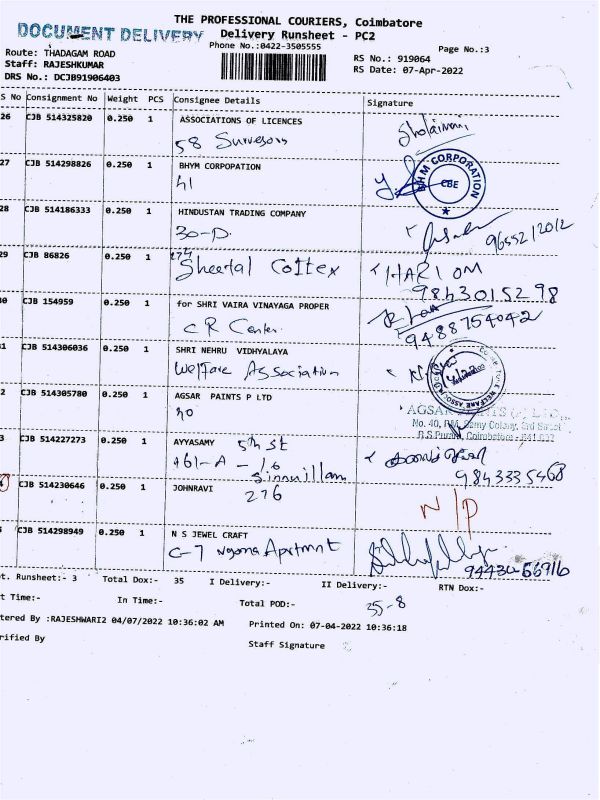 THE PROFESSIONAL COURIERS, Coimbatore
DOCUMENT DELIVERY Delivery Runsheet - PC2
Phone No.:0422-3505555 Page No.:3
Route: THADAGAM ROAD RS No.: 919064
Staff: RAJESHKUMAR RS Date: 07-Apr-2022
DRS No.: DCJB91906403
S No Consignment No Weight PCS Consignee Details Signature
26 CJB 514325820 0.250 1 ASSOCIATIONS OF LICENCES
58 Surveson
27 CJB 514298826 0.250 1 BHYM CORPOPATION
41
BHM CORPORATION
CBE
28 CJB 514186333 0.250 1 HINDUSTAN TRADING COMPANY
30-D
29 CJB 86826 0.250 1
Sheetal Cottex HARI OM
9843015298
30 CJB 154959 0.250 1 for SHRI VAIRA VINAYAGA PROPER
C R Center. 9488754042
31 CJB 514306036 0.250 1 SHRI NEHRU VIDHYALAYA
Welfare Association
2 CJB 514305780 0.250 1 AGSAR PAINTS P LTD
40
AGSAR PAINTS (P) LTD.,
3 CJB 514227273 0.250 1 AYYASAMY 5th st
461-A -
9843335468
CJB 514230646 0.250 1 JOHNRAVI
276
N/P
CJB 514298949 0.250 1 N S JEWEL CRAFT
C-7
t. Runsheet:- 3 Total Dox:- 35 I Delivery:- II Delivery:- RTN Dox:-
t Time:- In Time:- Total POD:- 35-8
tered By :RAJESHWARI2 04/07/2022 10:36:02 AM Printed On: 07-04-2022 10:36:18
rified By Staff Signature